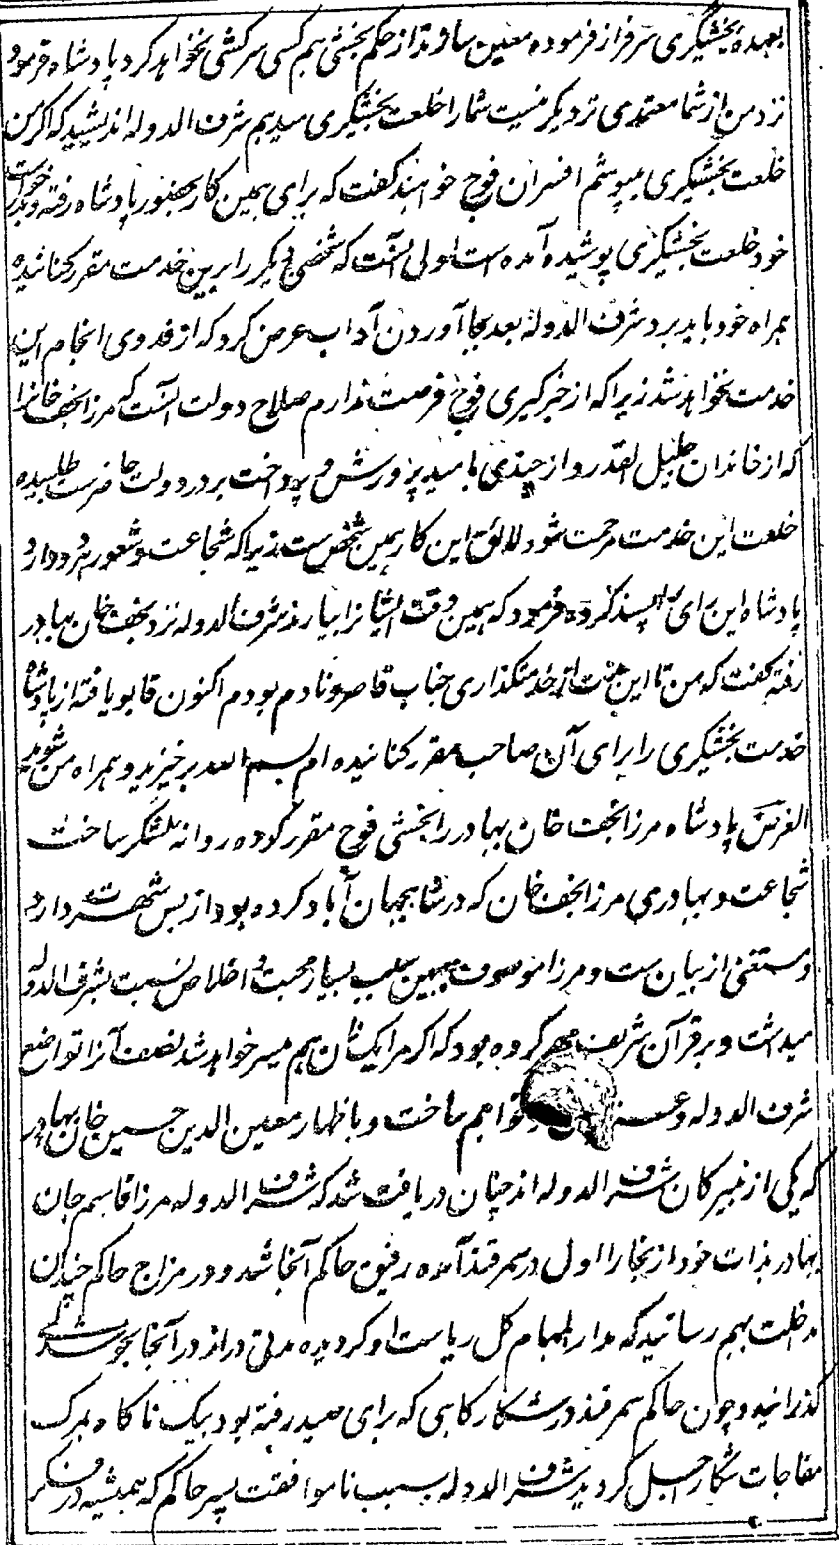 بعهدهٔ بخشیگری سرفراز فرموده معین سازند از حکم بخشی هم کسی سرکشی نخواهد کرد پادشاه فرمود
نزد من از شما معتمدی تر دیگر نیست شما را خلعت بخشیگری میدهم شرف الدوله اندیشید که اگر من
خلعت بخشیگری میپوشم افسران فوج خواهند گفت که برای همین کار بحضور پادشاه رفته و بدرخواست
خود خلعت بخشیگری پوشیده آمده است اولی آنست که شخصی دیگر را برین خدمت مقرر کنانیده
همراه خود باید برد شرف الدوله بعد بجا آوردن آداب عرض کرد که از فدوی انجام این
خدمت نخواهد شد زیرا که از خبرگیری فوج فرصت ندارم صلاح دولت آنست که مرزا نجف خانرا
که از خاندان جلیل القدر و از چندی بامید پرورش و پرداخت بر در دولت حاضرست طلبیده
خلعت این خدمت مرحمت شود لائق این کار همین شخص ست زیرا که شجاعت و شعور هر دو دارد
پادشاه این رای را پسند کرده فرمود که همین وقت ایشانرا بیارند شرف الدوله نزد نجف خان بهادر
رفته گفت که من تا این از خدمتگذاری جناب قاصر و نادم بودم اکنون قابو یافته از پادشاه
خدمت بخشیگری را برای آن صاحب مقرر کنانیده ام بسم الله برخیزید و همراه من شوید
الغرض پادشاه مرزا نجف خان بهادر را بخشی فوج مقرر کرده روانه بلشکر ساخت
شجاعت و بهادری مرزا نجف خان که در شاهجهان آباد کرده بود از بس شهرت دارد
و مستغنی از بیان ست و مرزا موصوف بهمین سبب بسیار محبت و اخلاص نسبت بشرف الدوله
میداشت و بر قرآن شریف مهر کرده بود که اگر مرا یک نان هم میسر خواهد شد نصف آنرا تواضع
شرف الدوله و خواهم ساخت و باظهار معین الدین حسین خان بهادر
که یکی از نبیرگان شرف الدوله اند چنان دریافت شد که شرف الدوله مرزا قاسم جان
بهادر بذات خود از بخارا اول در سمرقند آمده رفیق حاکم آنجا شد و در مزاج حاکم چنان
مداخلت بهم رسانید که مدار المهام کل ریاست او گردیده مدتی دراز در آنجا بخوشدلی
گذرانید و چون حاکم سمرقند در شکارگاهی که برای صید رفته بود بیک ناگاه بمرگ
مفاجات شکار اجل گردید شرف الدوله بسبب ناموافقت پسر حاکم که همیشه در فکر